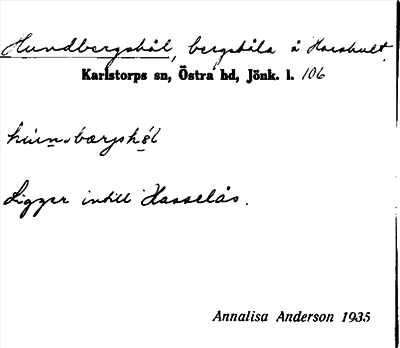 Hundbergshål, bergshåla å Harshult.
Karlstorps sn, Östra hd, Jönk. l. 106
Ligger intill Hasselås.
Annalisa Anderson 1935